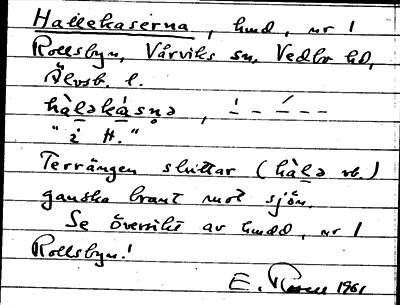 Hallekaserna, hmd, nr 1
Rollsbyn, Vårviks sn, Vedbo hd,
Älvsb. l.
hàləkàsnə, – – – –
"i H."
Terrängen sluttar (hàlə vb.)
ganska brant mot sjön.
Se översikt av hmdd, nr 1
Rollsbyn!
E. 1961